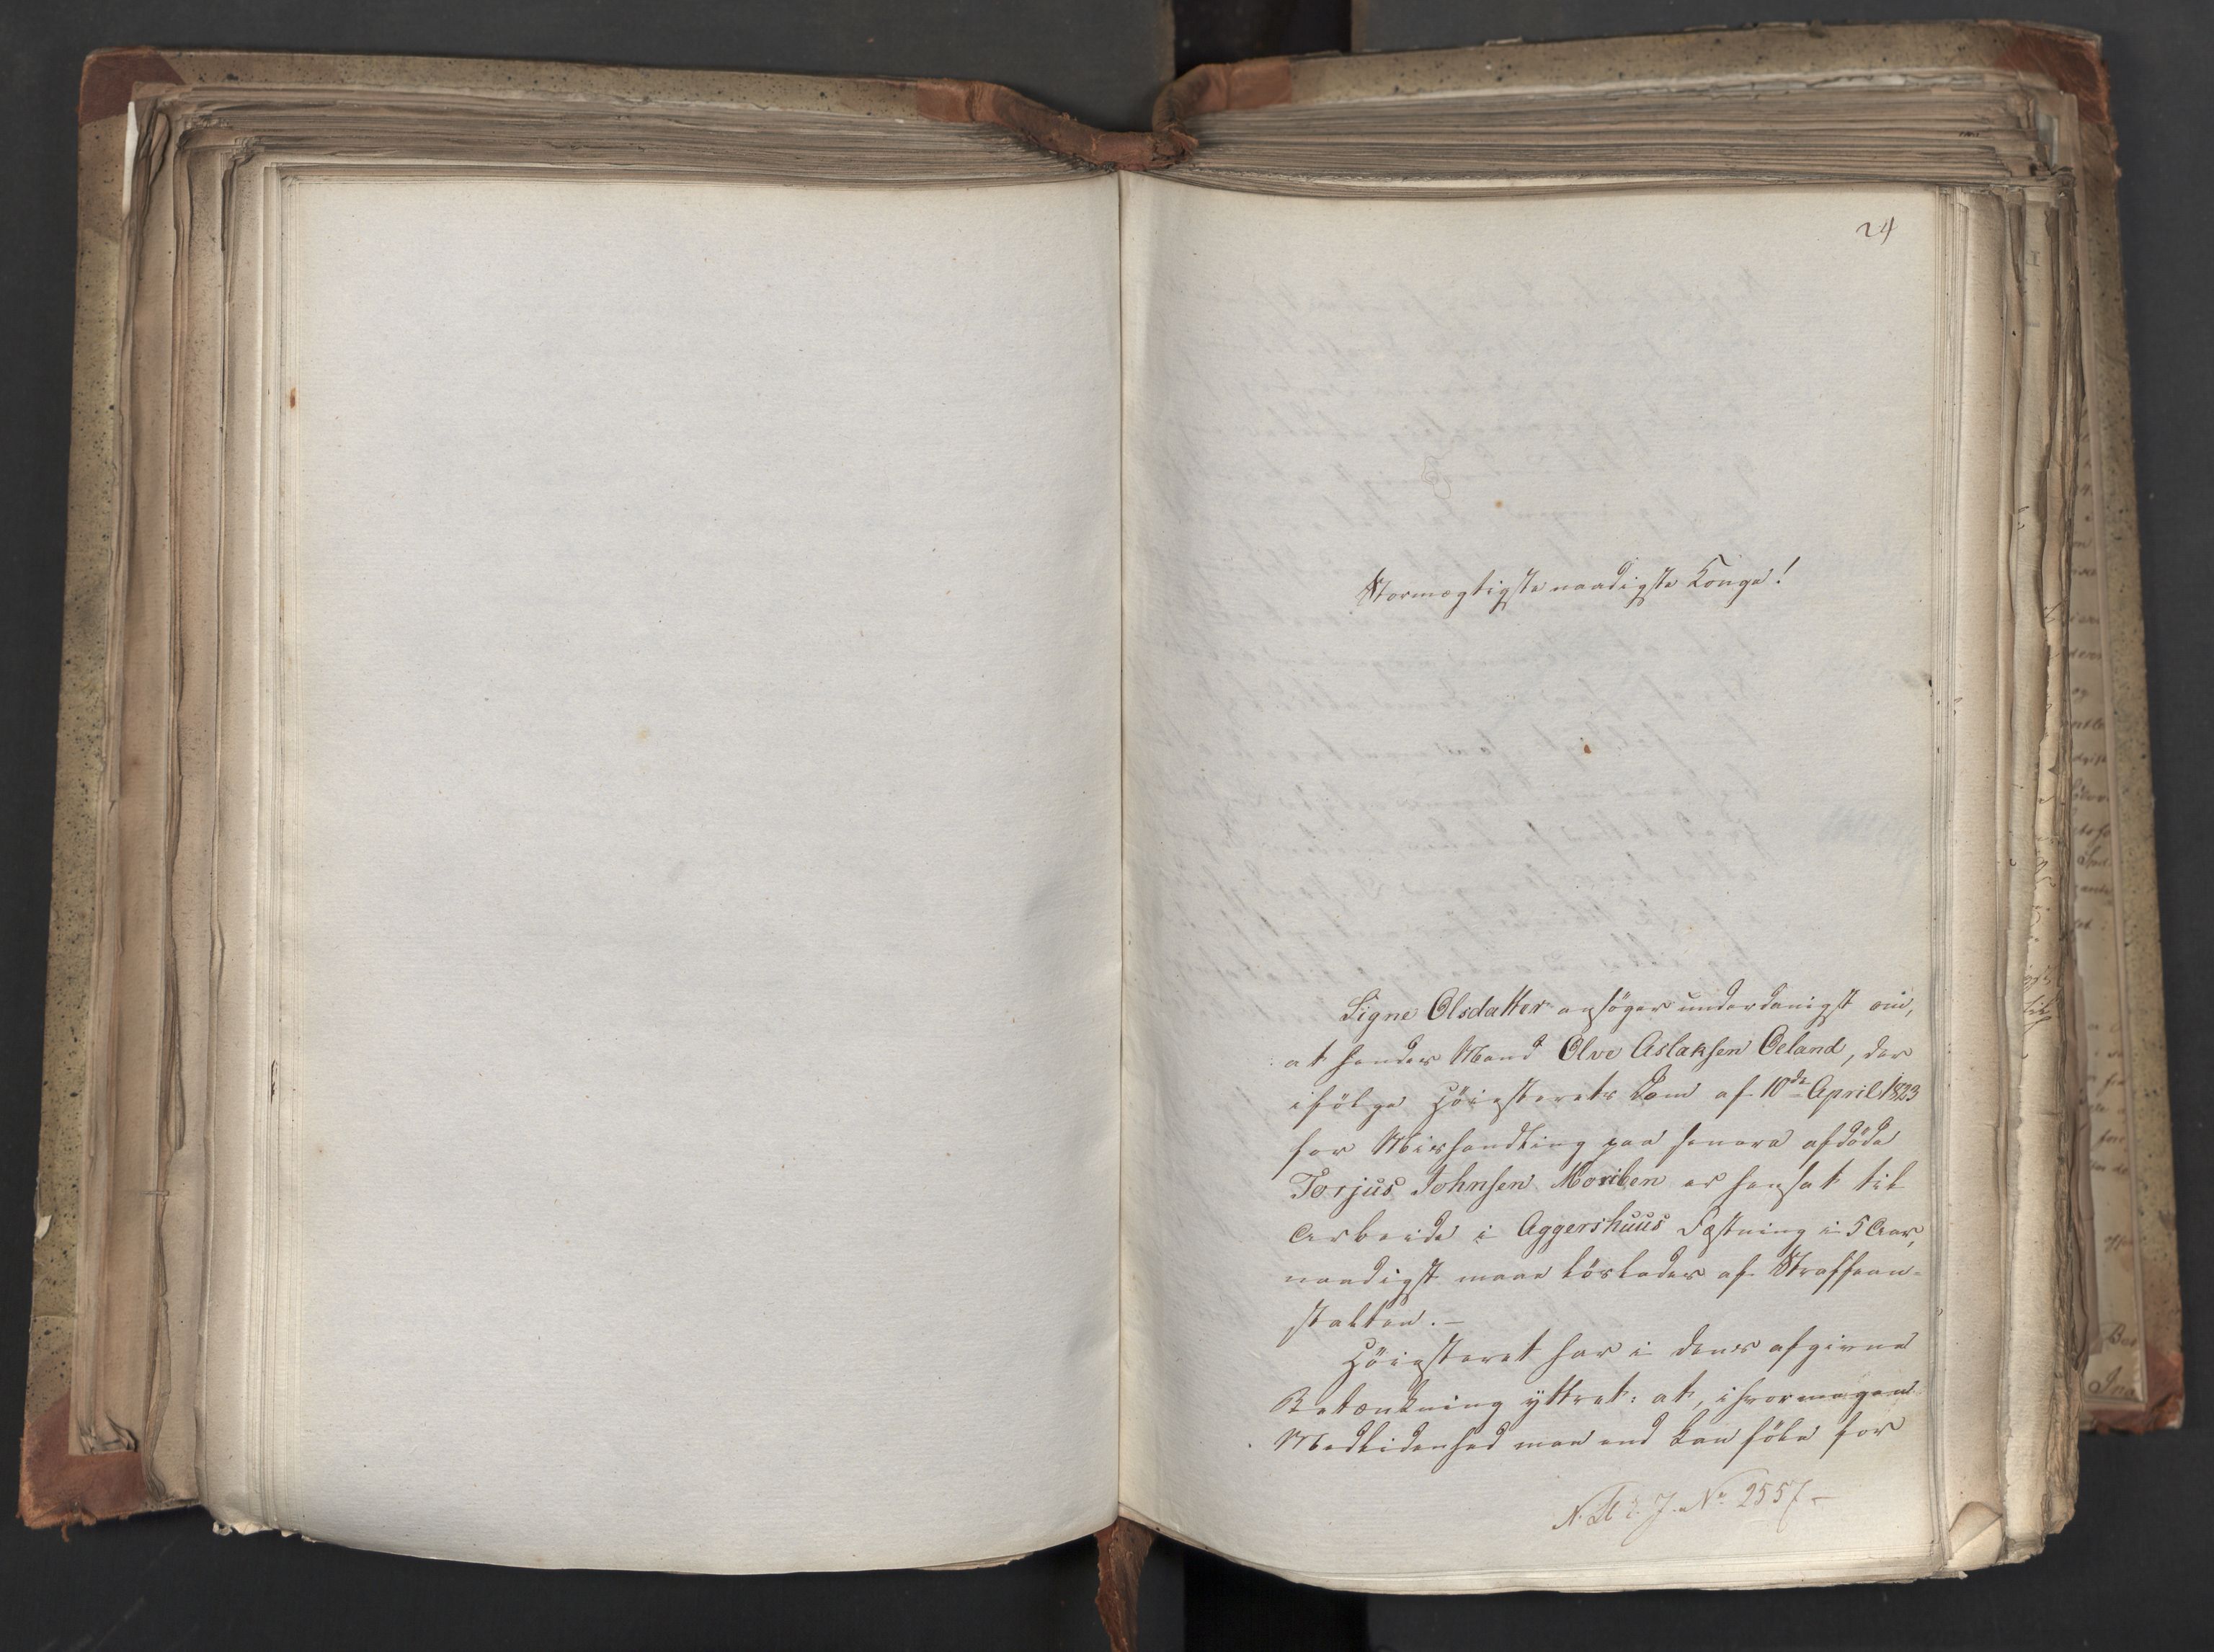 24
Stormægtigste naadigste Konge!
Signe Olsdatter ansöger underdanigst om,
at hendes Mand Olve Aslaksen Oeland, der
ifölge Höiesterets Dom af 10de April 1823
for Mishandling paa senere afdöde
Torjus Johnsen er hensat til
Arbeide i Aggershuus Fæstning i 5 Aar,
naadigst maae löslades af Straffean-
stalten. —
Höiesteret har i dens afgivne
Betænkning yttret: at, ihvormegen
Medlidenhed man end kan föle for